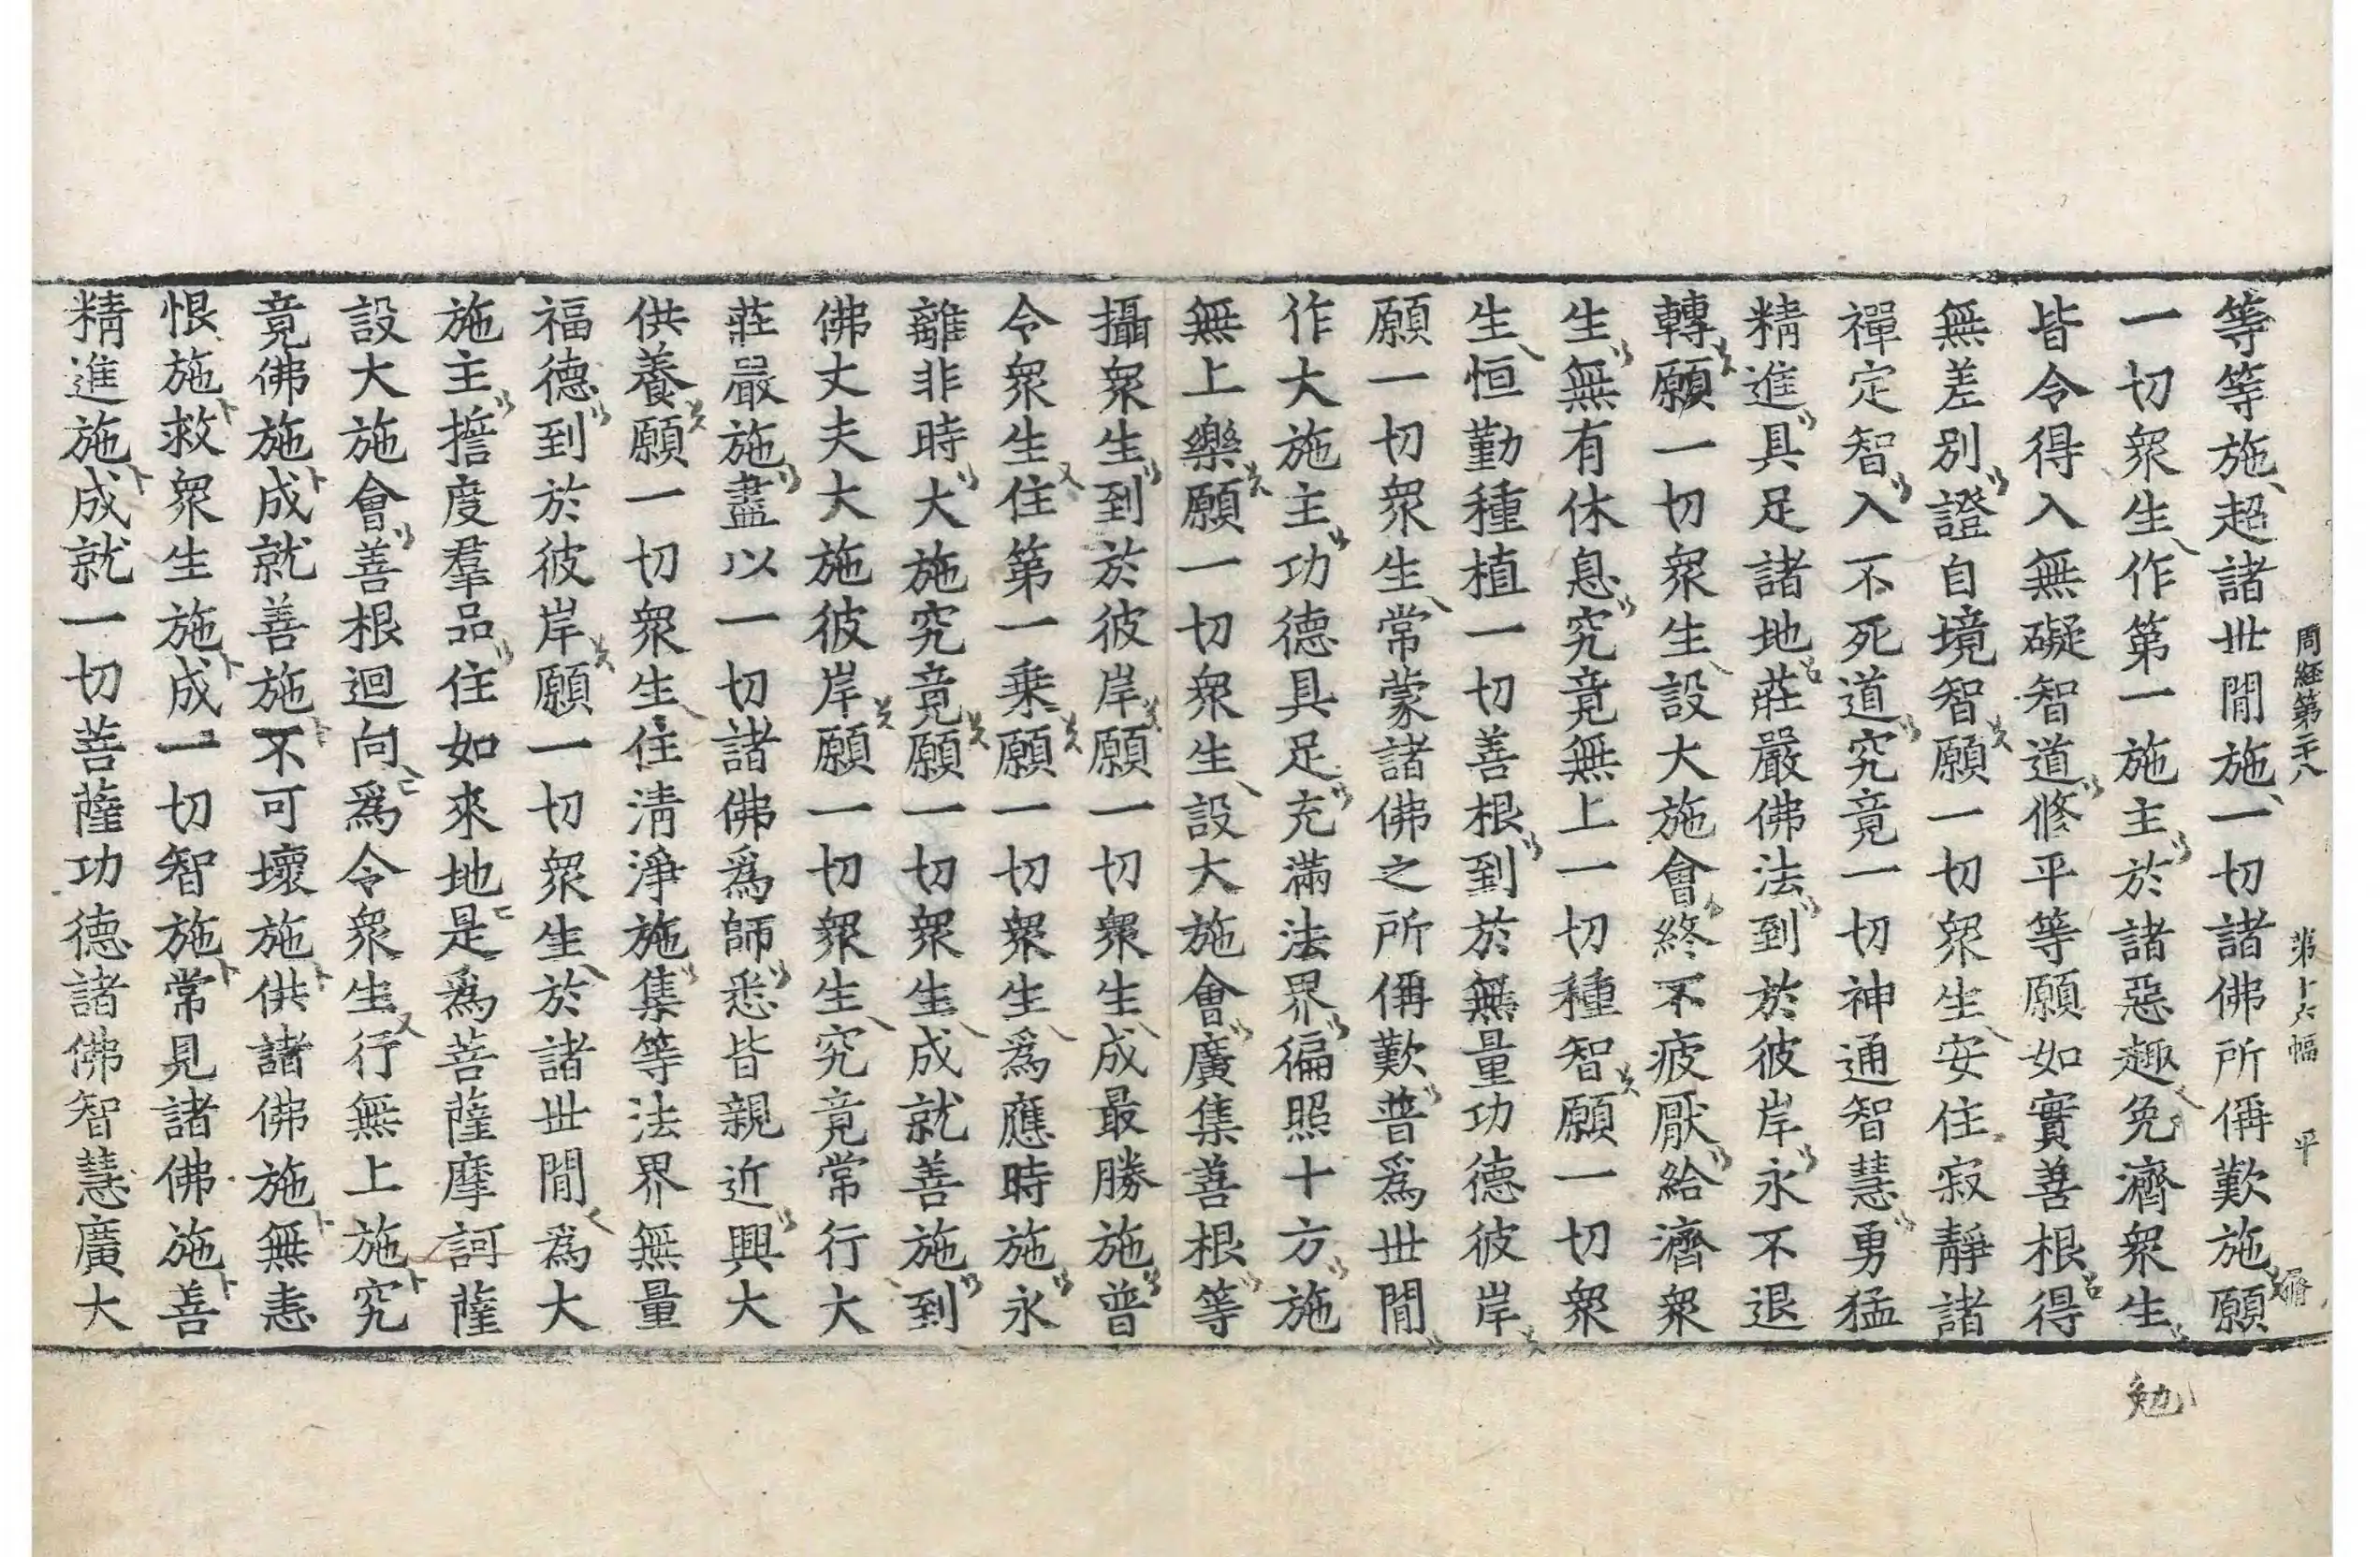 周経第二十八 第十六幅 平
等等施超諸世間施一切諸佛所稱歎施願
一切衆生作第一施主於諸惡趣免濟衆生
皆令得入無礙智道修平等願如實善根得
無差別證自境智願一切衆生安住寂靜諸
禪定智入不死道究竟一切神通智慧勇猛
精進具足諸地莊嚴佛法到於彼岸永不退
轉願一切衆生設大施會終不疲厭給濟衆
生無有休息究竟無上一切種智願一切衆
生恒勤種植一切善根到於無量功德彼岸
願一切衆生常蒙諸佛之所稱歎普爲世間
作大施主功德具足充滿法界徧照十方施
無上樂願一切衆生設大施會廣集善根等
攝衆生到於彼岸願一切衆生成最勝施普
令衆生住第一乗願一切衆生爲應時施永
離非時大施究竟願一切衆生成就善施到
佛丈夫大施彼岸願一切衆生究竟常行大
莊嚴施盡以一切諸佛爲師悉皆親近興大
供養願一切衆生住清淨施集等法界無量
福德到於彼岸願一切衆生於諸世間爲大
施主誓度羣品住如來地是爲菩薩摩訶薩
設大施會善根迴向爲令衆生行無上施究
竟佛施成就善施不可壞施供諸佛施無恚
恨施救衆生施成一切智施常見諸佛施善
精進施成就一切菩薩功德諸佛智慧廣大
勉